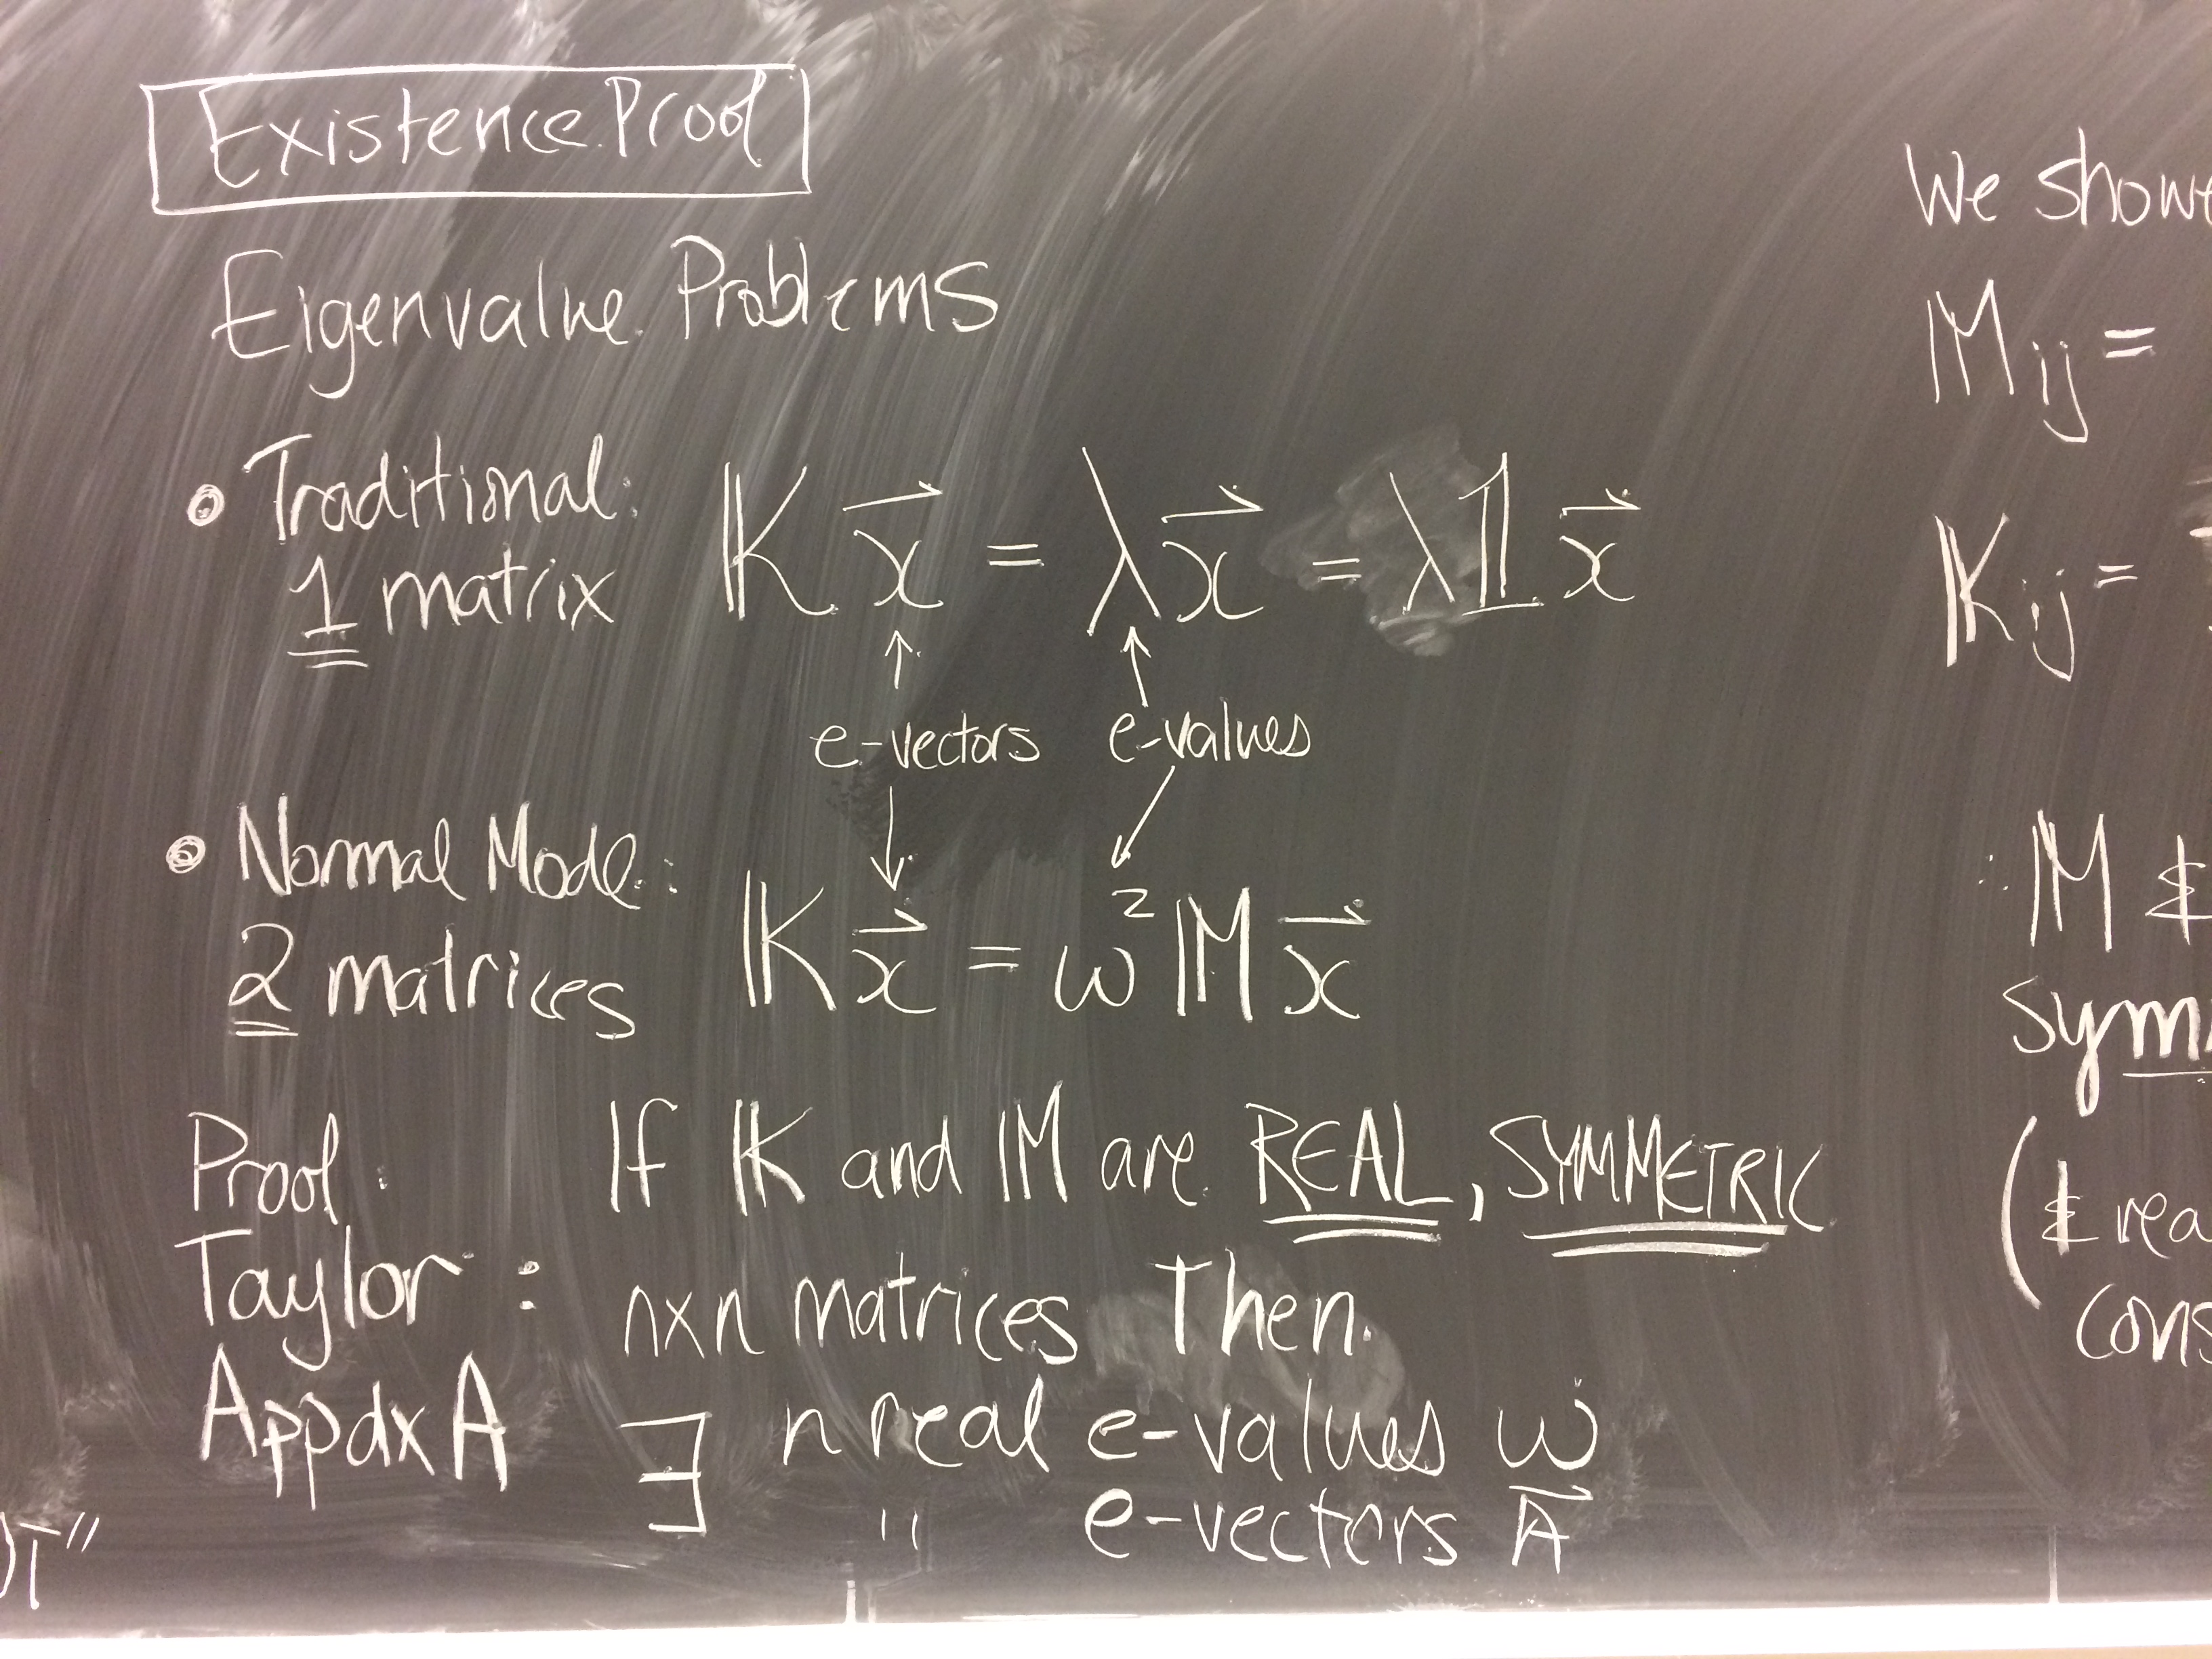 Existence Proof
Eigenvalue Problems
• Traditional:
1 matrix
𝕂 x⃗ = λ x⃗ = λ 𝟙 x⃗
↑ ↑
e-vectors e-values
↓ ↙
• Normal Mode:
2 matrices
𝕂 x⃗ = ω² 𝕄 x⃗
Proof: If 𝕂 and 𝕄 are REAL, SYMMETRIC
Taylor: nxn matrices Then
Appdx A ∃ n real e-values ω
" e-vectors A⃗
We showe
𝕄ij =
𝕂ij =
∴ 𝕄 &
symm
(& rea
cons